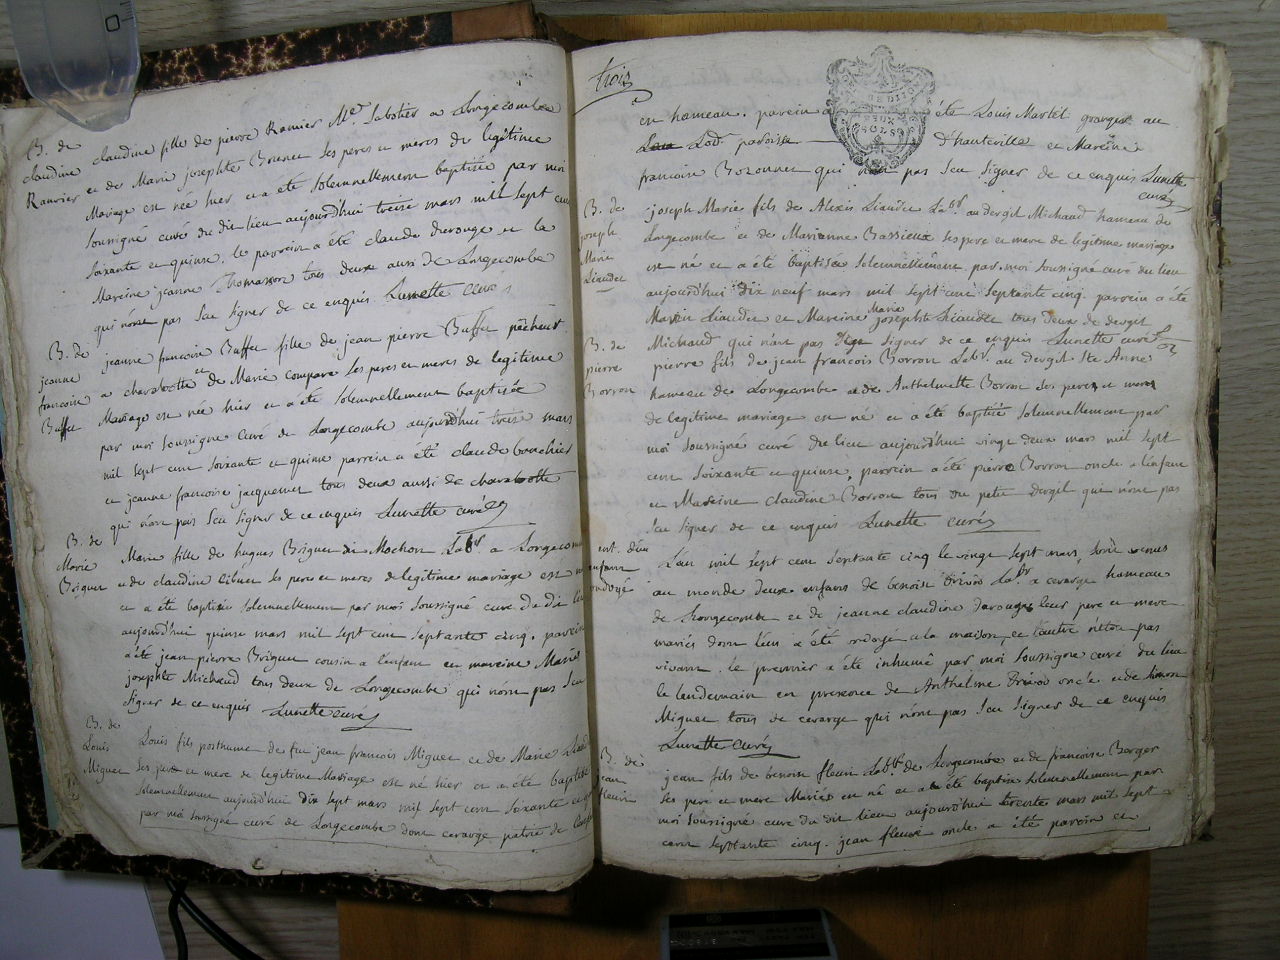 B. de
claudine
Ranvier
claudine fille de pierre Ranvier Me. Sabotier a Longecombe
et de Marie josephte Brunet ses peres et meres de legitime
Mariage est née hier et a été solemnellement baptisée par moi
soussigné curé du dit lieu aujourd'hui treize mars mil sept cent
soixante et quinze, le parrein a été claude derouge et la
Mareine jeanne Thomasson tous deux aussi de Longecombe
qui n'ont pas seu signer de ce enquis Lunette curé
B. de
jeanne
francoise
Buffet
jeanne francoise Buffet fille de jean pierre Buffet pêcheur
a charabotte et de Marie compare ses peres et meres de legitime
Mariage est née hier et a été solemnellement baptisée
par moi soussigné curé de Longecombe aujourd'hui treize mars
mil sept cent soixante et quinze parrein a été claude bouchier
et jeanne francoise jacquemet tous deux aussi de charabotte
qui n'ont pas seu signer de ce enquis Lunette curé
B. de
Marie
Briguet
Marie fille de hugues Briguet du Mochon Labr a Longecom
et de claudine ses pere et meres de legitime mariage est
et a été baptisée solemnellement par moi soussigné curé du dit lieu
aujourd'hui quinze mars mil sept cent septante cinq. parrein
a été jean pierre Briguet cousin a l'enfant et mareine Marie
josephte Michaud tous deux de Longecombe qui n'ont pas seu
signer de ce enquis Lunette curé
B. de
Louis
Miguet
Louis fils posthume de feu jean francois Miguet et de Marie
ses pere et mere de legitime Mariage est né hier et a été baptisé
solemnellement aujourd'hui dix sept mars mil sept cent soixante et
par moi soussigné curé de Longecombe dont cerarge patrie de
trois
en hameau. parrein a été Louis Martel granger au
Lod. paroisse d'hauteville et Mareine
francoise Bozonnet qui n'ont pas seu signer de ce enquis Lunette
curé
B. de
joseph
Marie
Liaudet
joseph Marie fils de Alexis Liaudet Labr. au dergil Michaud hameau de
Longecombe et de Marianne Bassieux ses pere et mere de legitime mariage
est né et a été baptisée solemnellement par moi soussigné curé du lieu
aujourd'hui dix neuf mars mil sept cent septante cinq parrein a été
Liaudet et Mareine Marie josephte Liaudet tous deux de dergil
Michaud qui n'ont pas seu signer de ce enquis Lunette curé
B. de
pierre
Borron
pierre fils de jean francois Borron Labr. au dergil Ste Anne
hameau de Longecombe et de Anthelmette Borron ses peres et meres
de legitime mariage est né et a été baptisée solemnellement par
moi soussigné curé du lieu aujourd'hui vingt deux mars mil sept
cent soixante et quinze, parrein a été pierre Borron oncle a l'enfant
et Mareine claudine Borron tous du petit dergil qui n'ont pas
seu signer de ce enquis Lunette curé
ent. d'un
enfant
ondoyé
L'an mil sept cent septante cinq le vingt sept mars sont venus
au monde deux enfans de benoit Labr a cerarge hameau
de Longecombe et de jeanne claudine derouge leur pere et mere
mariés dont l'un a été ondoyé a la maison, et l'autre n'étoit pas
vivant. le premier a été inhumé par moi soussigné curé du lieu
le lendemain en presence de Anthelme oncle et de simon
Miguet tous de cerarge qui n'ont pas seu signer de ce enquis
Lunette curé
B. de
jean
fleuri
jean fils de benoit fleuri Labr. de Longecombe et de francoise Berger
ses pere et mere Mariés est né et a été baptisé solemnellement par
moi soussigné curé du dit lieu aujourd'hui trente mars mil sept
cent septante cinq. jean fleuri oncle a été parrein et